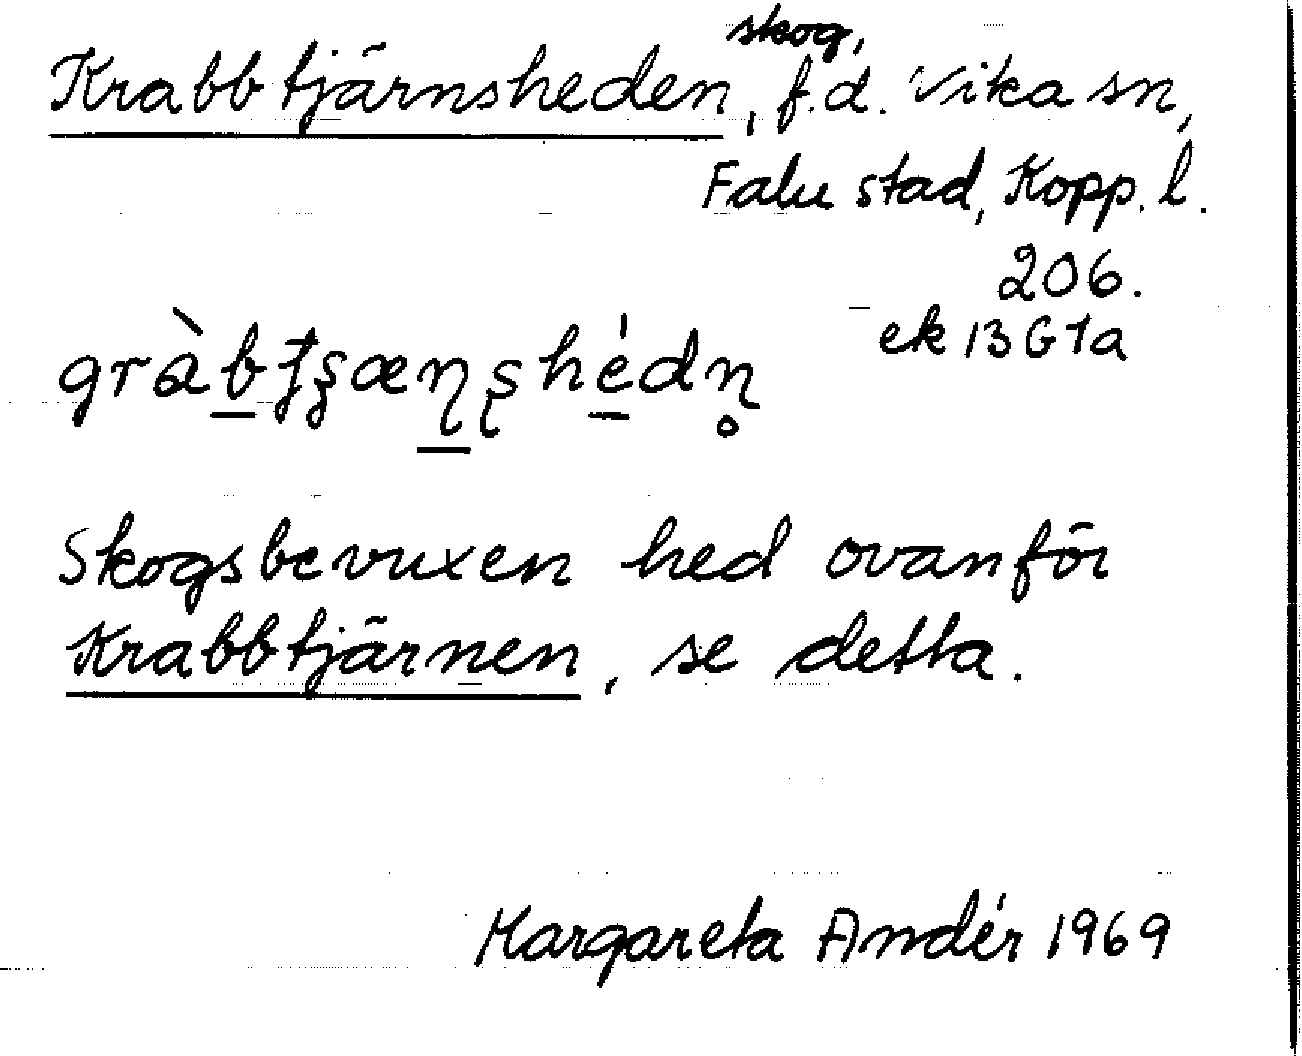 Krabbtjärnsheden, skog, f.d. Vika sn,
Falu stad, Kopp. l.
206.
ek 13G1a
Skogsbevuxen hed ovanför
Krabbtjärnen, se detta.
Margareta Andér 1969